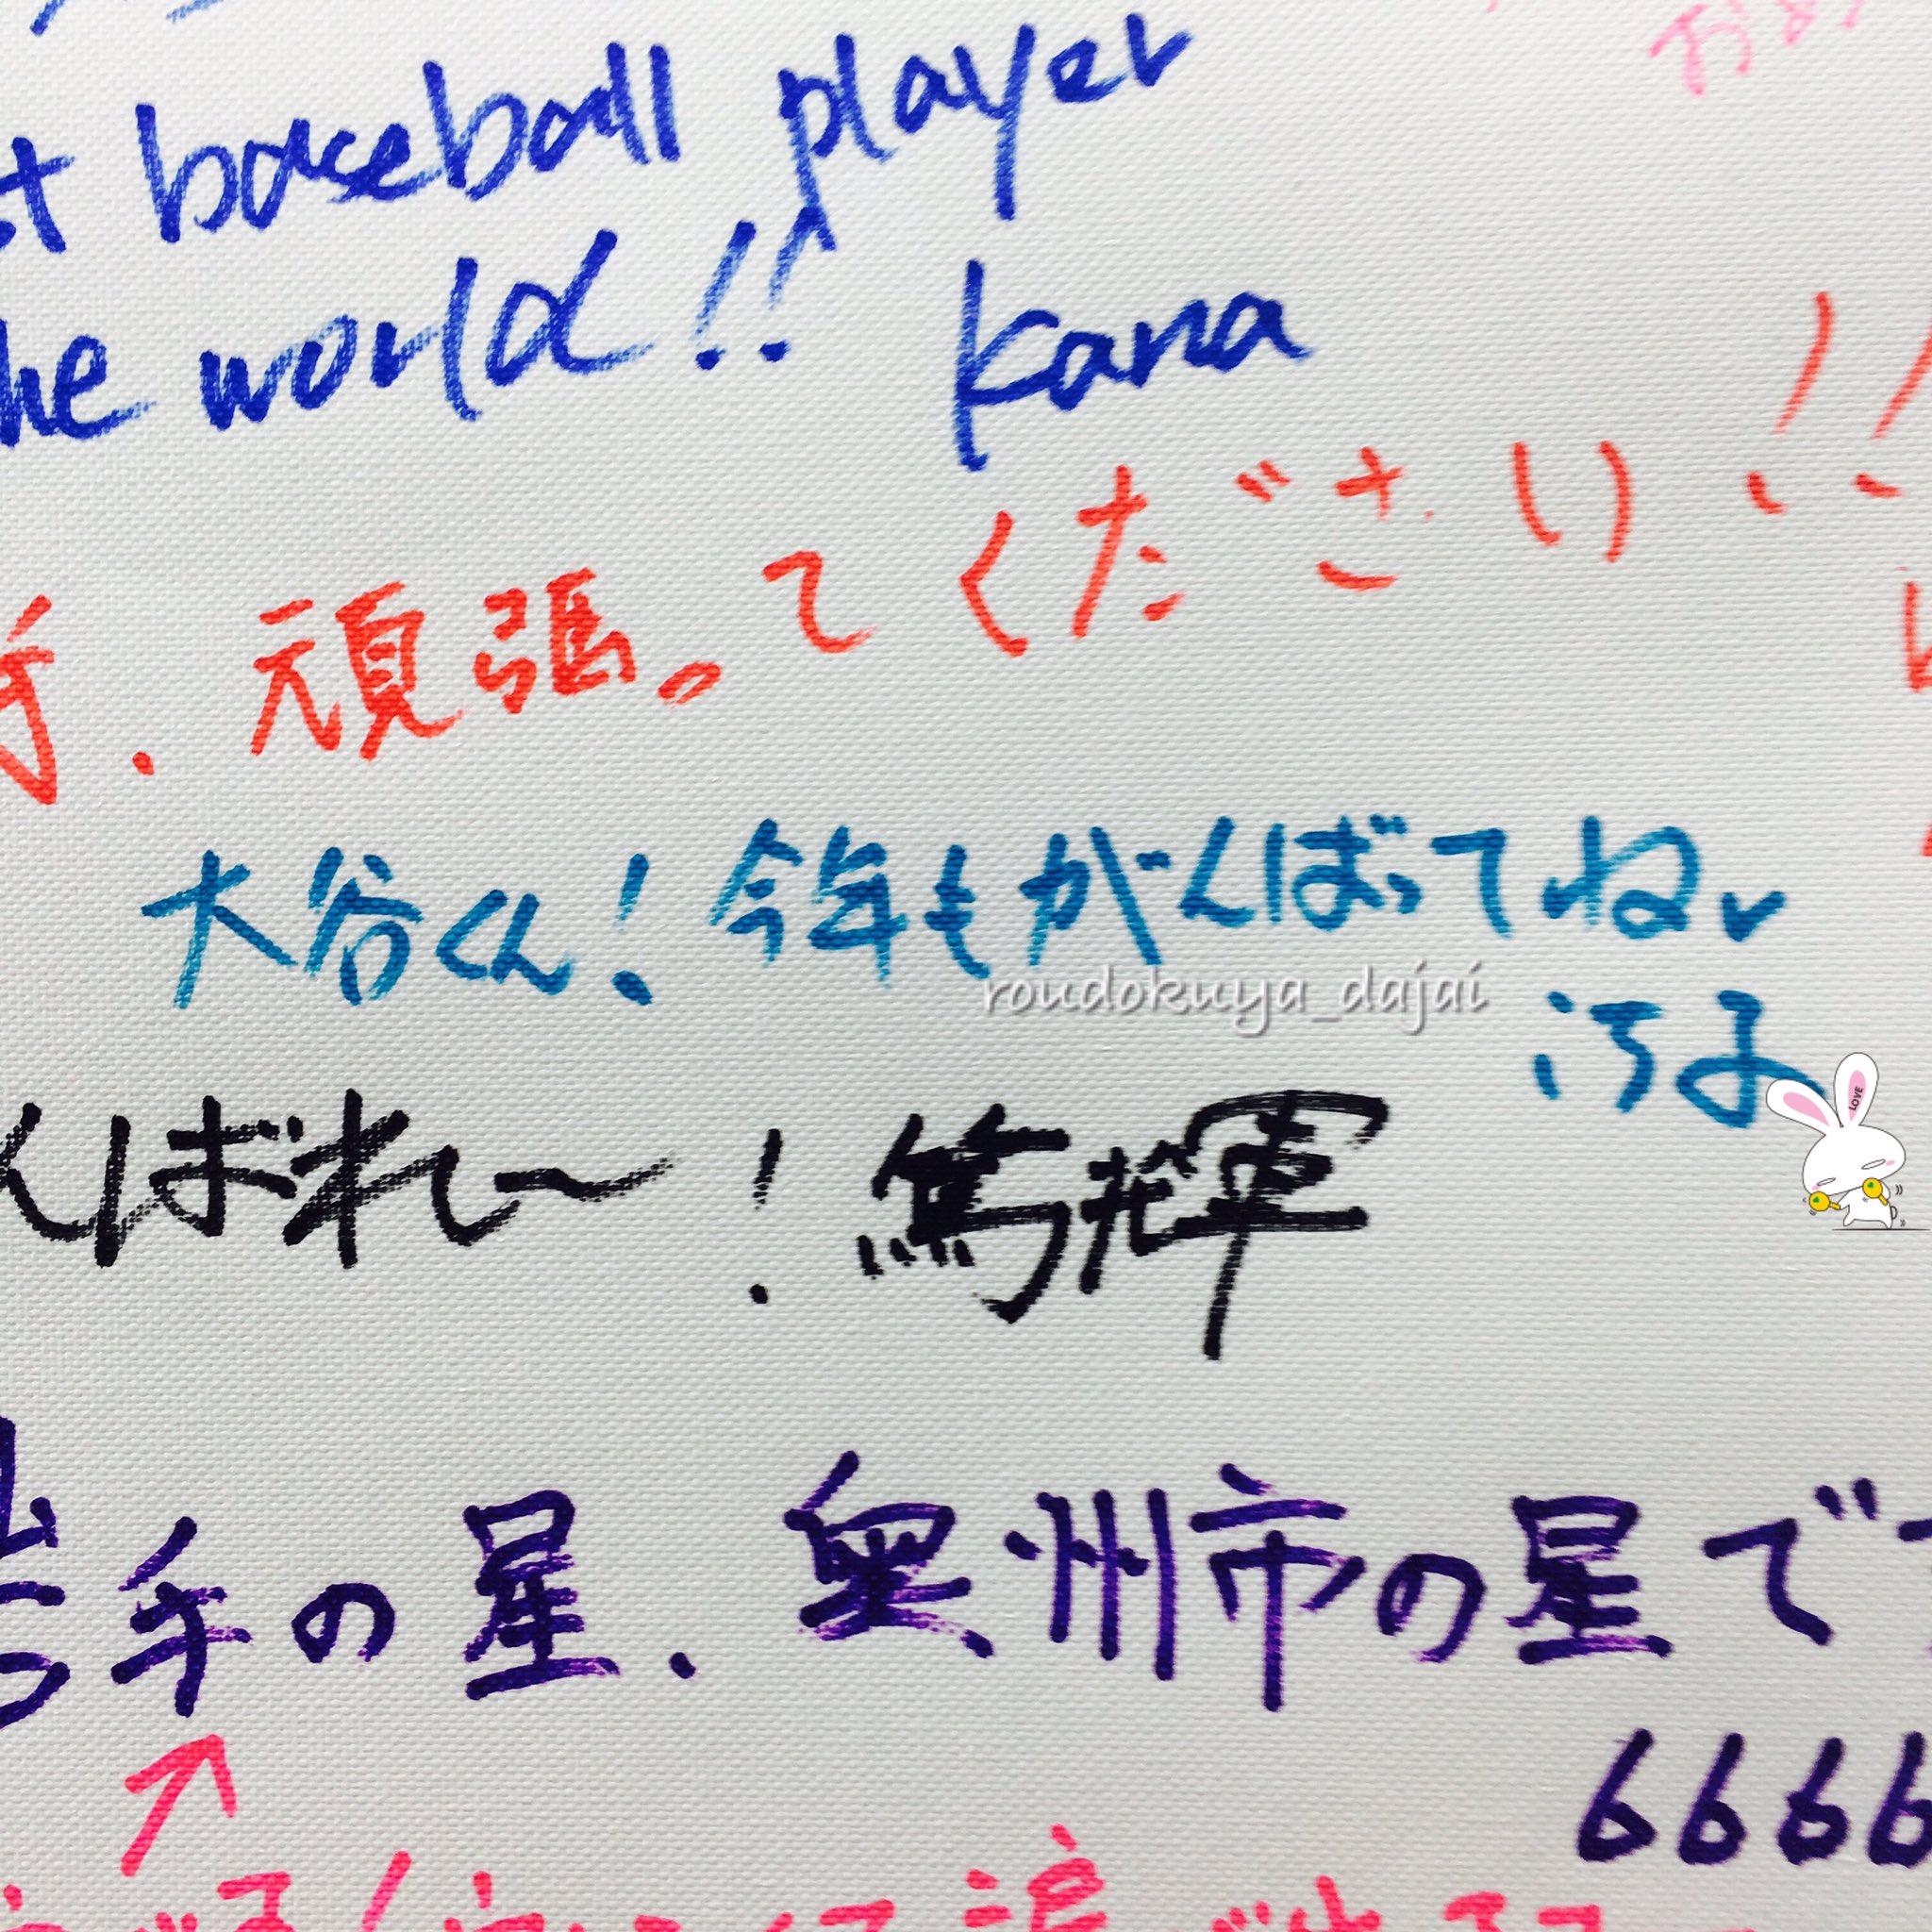 baseball player
the world!! Kana
手. 頑張ってください!!
大谷くん! 今年もがんばってね
roudokuya_dajai
LOVE
んばれ〜! 篤輝
岩手の星. 奥州市の星で
6666